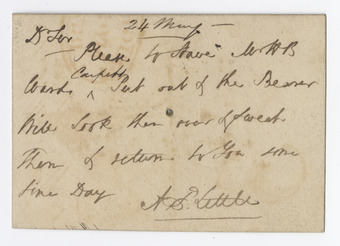 24 May
D Sir
Please to have Mr H B
Carpetts
Wards Put out of the Bearer
Will Look them over & Sweet
Them & return to You some
fine Day
A. D. Little